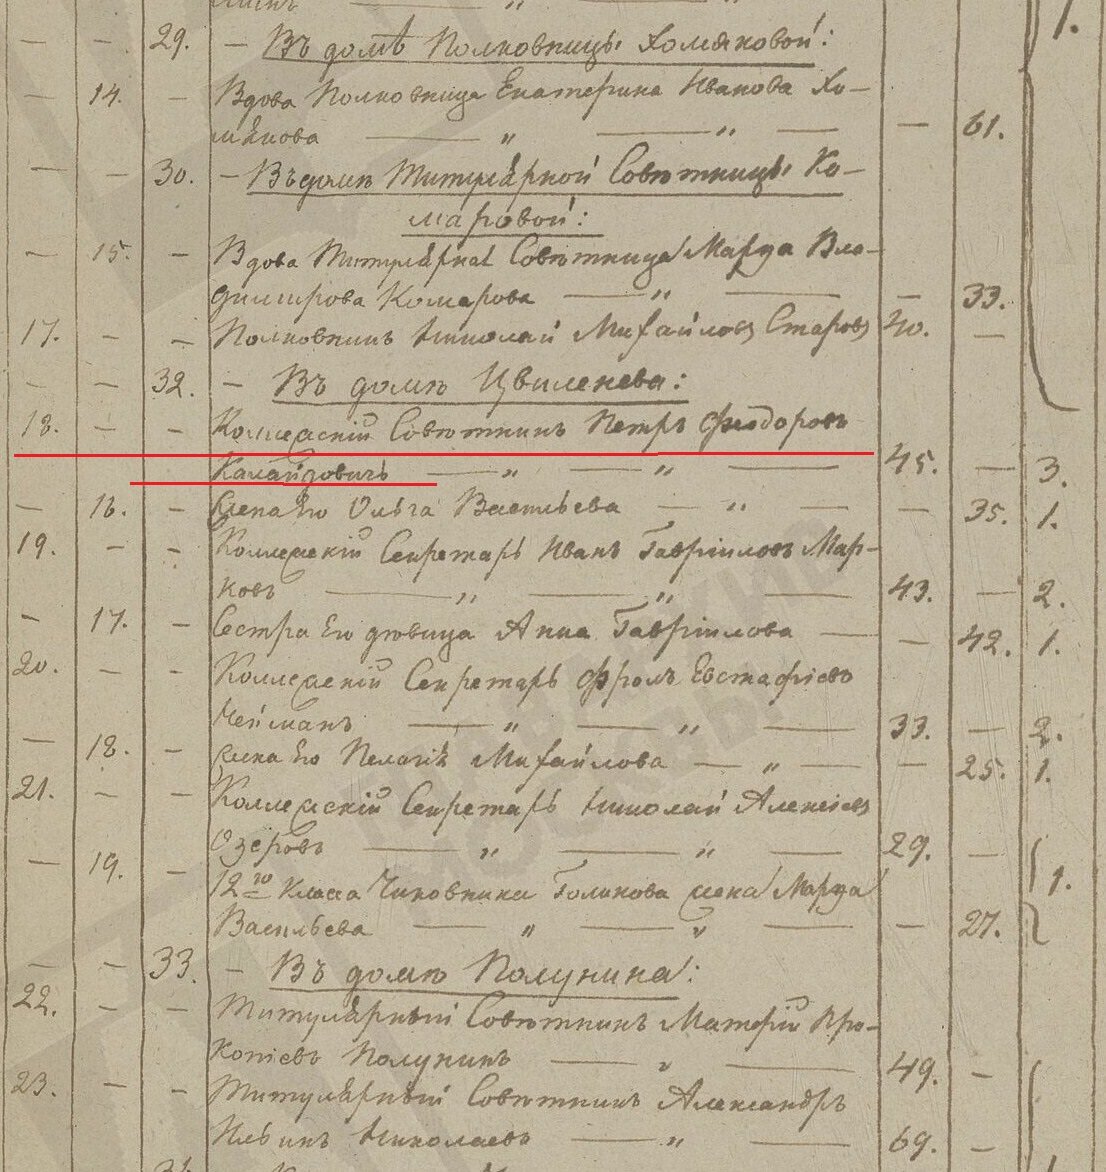 — — 29. — Въ домѣ Полковницы Хомяковой:
— 14. — Вдова Полковница Екатерина Иванова Хо-
мякова — „ — „ — — 61.
— — 30. — Въ домѣ Титулярной Совѣтницы Ко-
маровой:
— 15. — Вдова Титулярная Совѣтница Марѳа Вла-
димирова Комарова — „ — — 33.
17. — — Полковникъ Николай Михайловъ Старовъ 40. —
— — 32. — Въ домѣ Цвиленева:
18. — — Коллежскій Совѣтникъ Петръ Ѳеодоровъ
Калайдовичь — „ — „ — 45. — 3.
— 16. — Жена Его Ольга Васильева — „ — — 35. 1.
19. — — Коллежскій Секретарь Иванъ Гавріиловъ Мар-
ковъ — „ — „ — 43. — 2.
— 17. — Сестра Его дѣвица Анна Гавріилова — — 42. 1.
20. — — Коллежскій Секретарь Фролъ Евстафіевъ
Нейманъ — „ — „ — 33. — 2.
— 18. — Жена Его Пелагія Михайлова — „ — — 25. 1.
21. — — Коллежскій Секретарь Николай Алексіевъ
Озеровъ — „ — „ — 29. —
— 19. — 12го Класса Чиновника Голикова жена Марѳа 1.
Васильева — „ — „ — — 27.
— — 33. — Въ домѣ Полунина:
22. — — Титулярный Совѣтникъ Матѳій Про-
копіевъ Полунинъ — „ — 49. —
23. — — Титулярный Совѣтникъ Александръ
Ильинъ Николаевъ — „ — 69. —